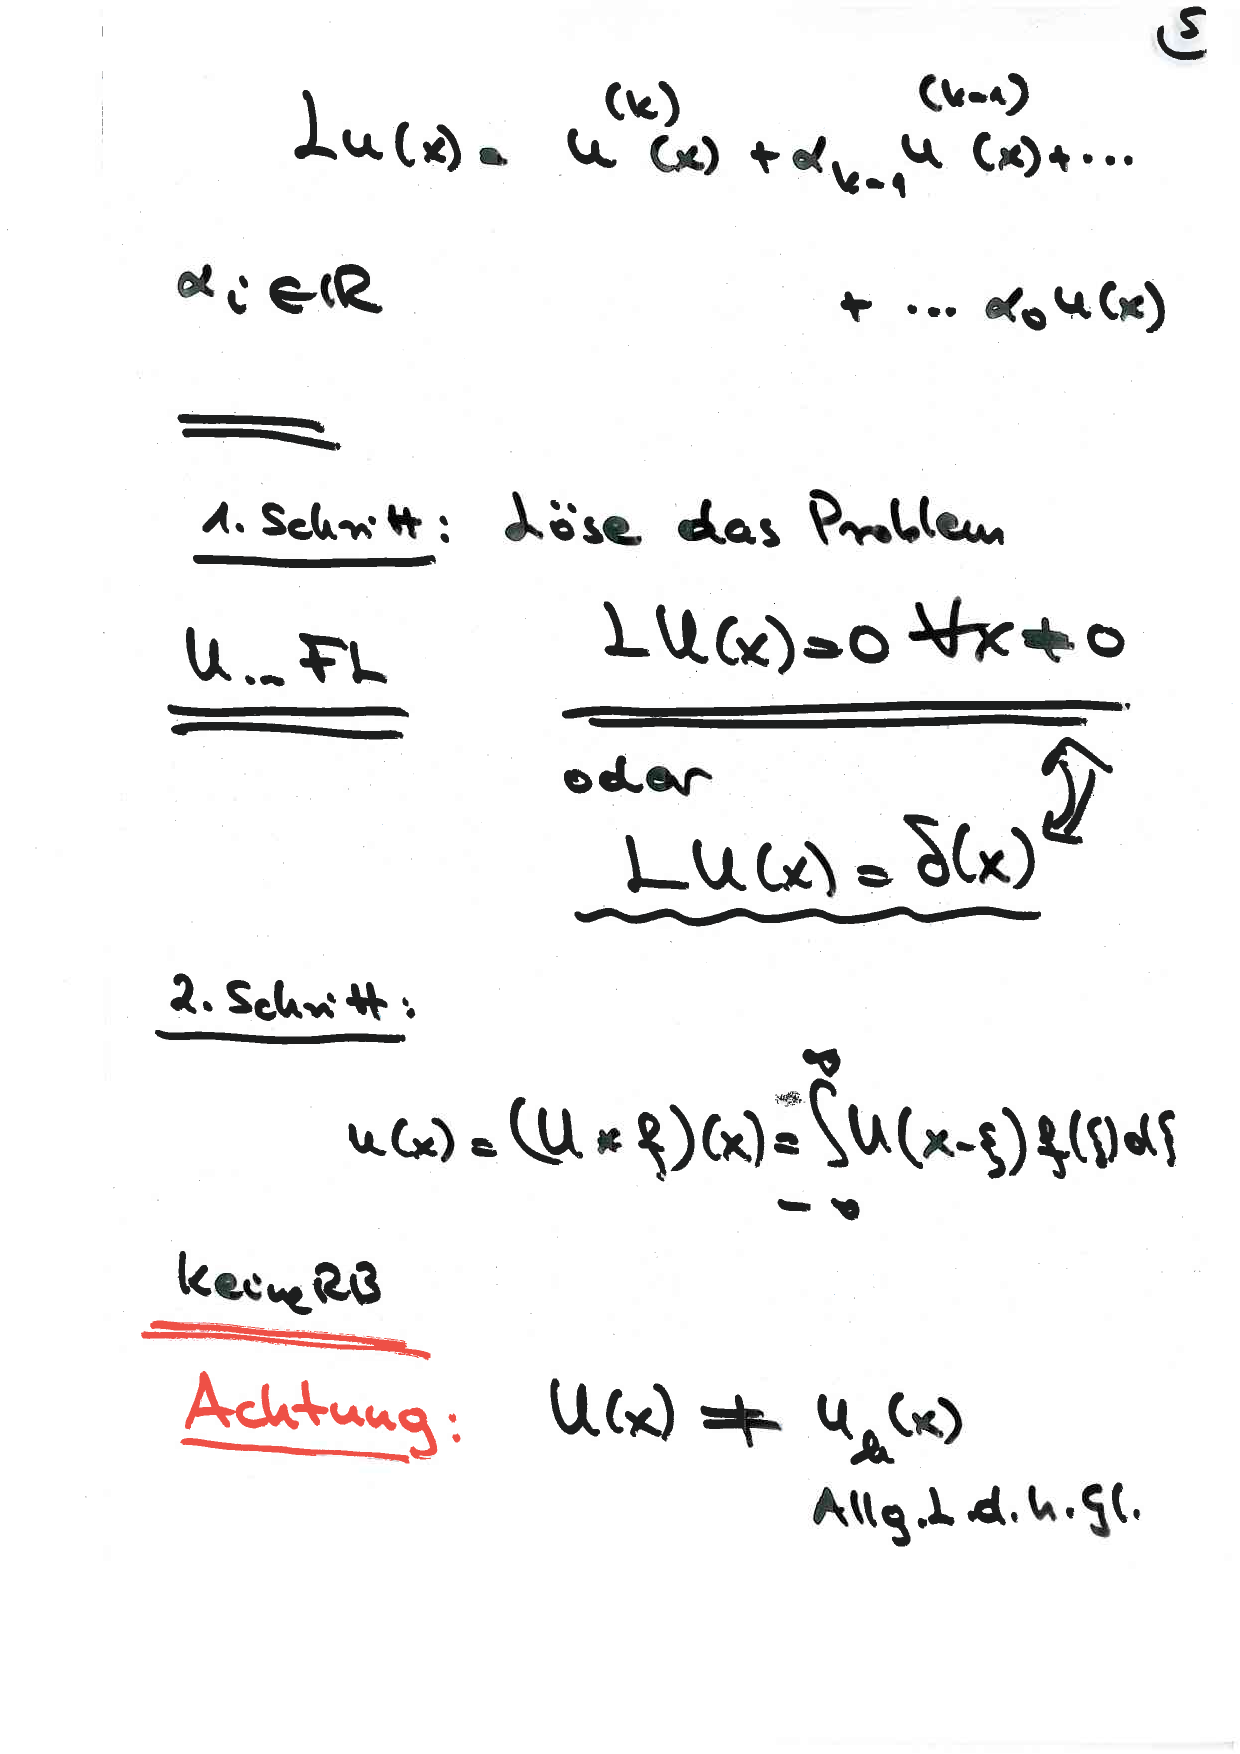 5
Lu(x) = u^(k)(x) + α_{k-1} u^(k-1)(x) + ...
α_i ∈ ℝ + ... α_0 u(x)
1. Schritt: Löse das Problem
U ... FL LU(x) = 0 ∀x ≠ 0
oder
LU(x) = δ(x)
2. Schritt:
u(x) = (U * f)(x) = ∫_{-∞}^{∞} U(x-ξ) f(ξ) dξ
keine RB
Achtung: U(x) ≠ u_h(x)
Allg. L. d. h. Gl.